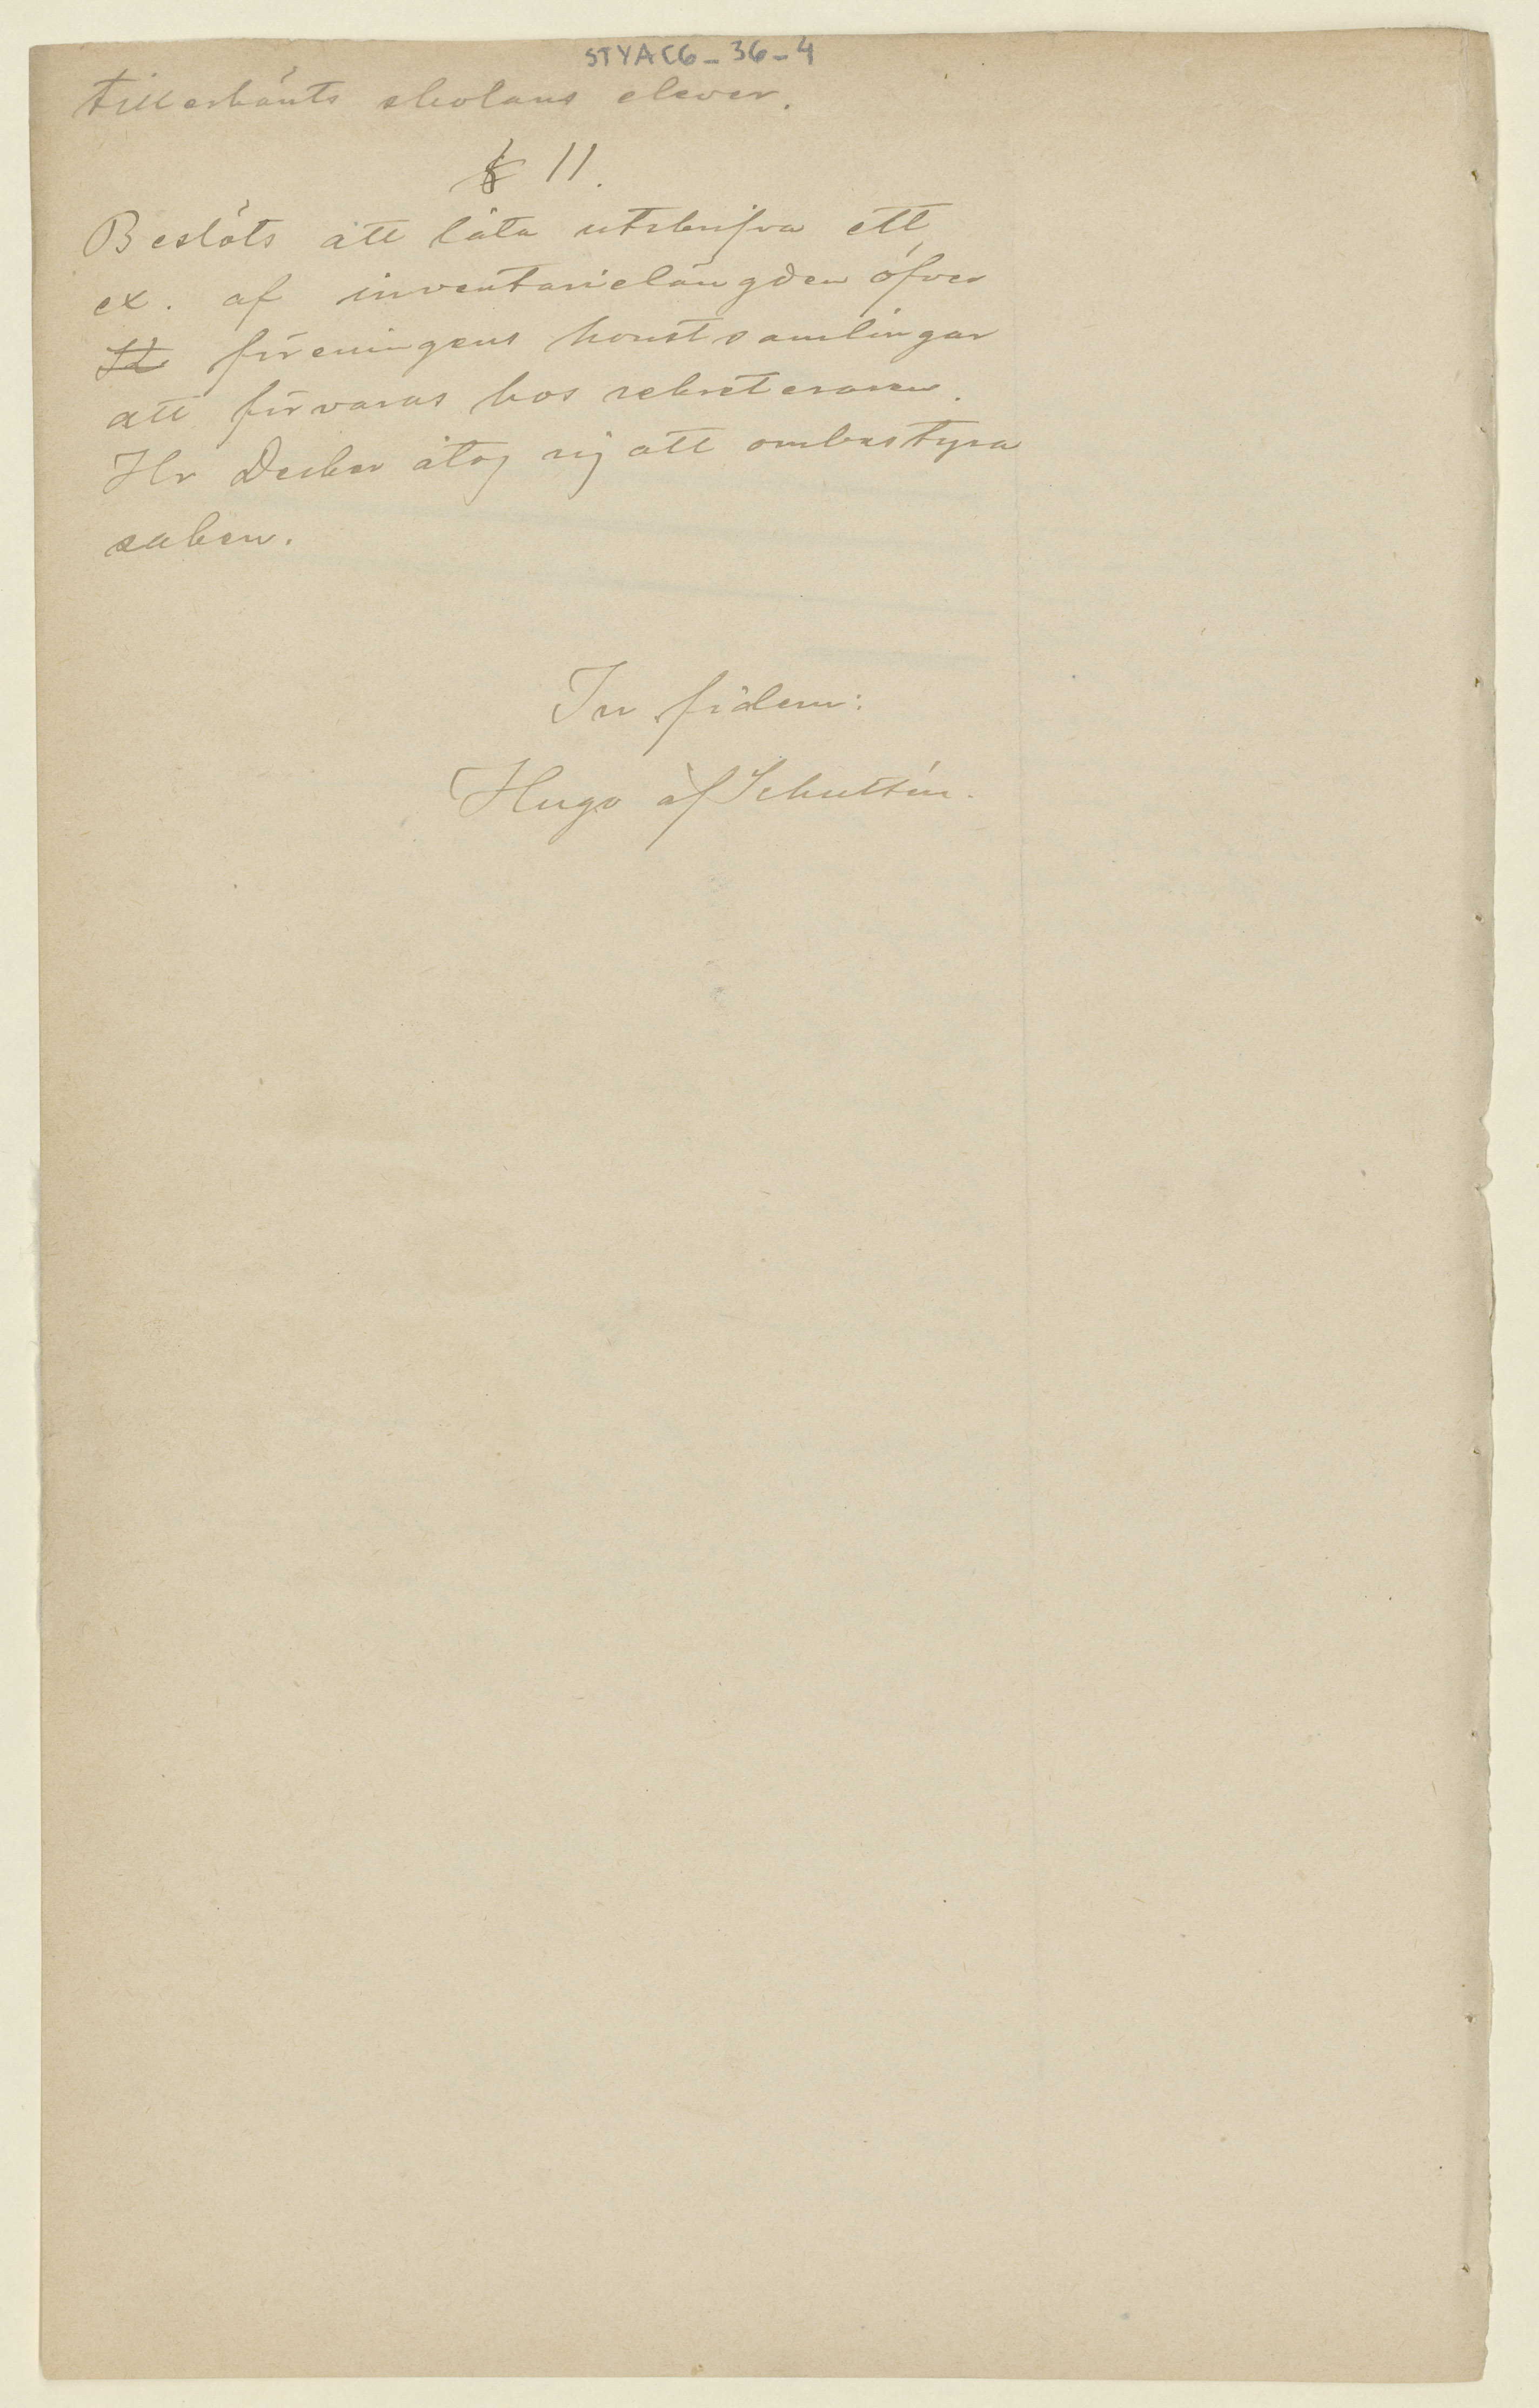 STYAC6-36-4
tillerkänts skolans elever.
§ 11.
Beslöts att låta utskrifva ett
ex. af inventarielängden öfver
föreningens konstsamlingar
att förvaras hos sekreteraren.
Hr Decker åtog sig att ombestyra
saken.
In fidem:
Hugo af Schultén.